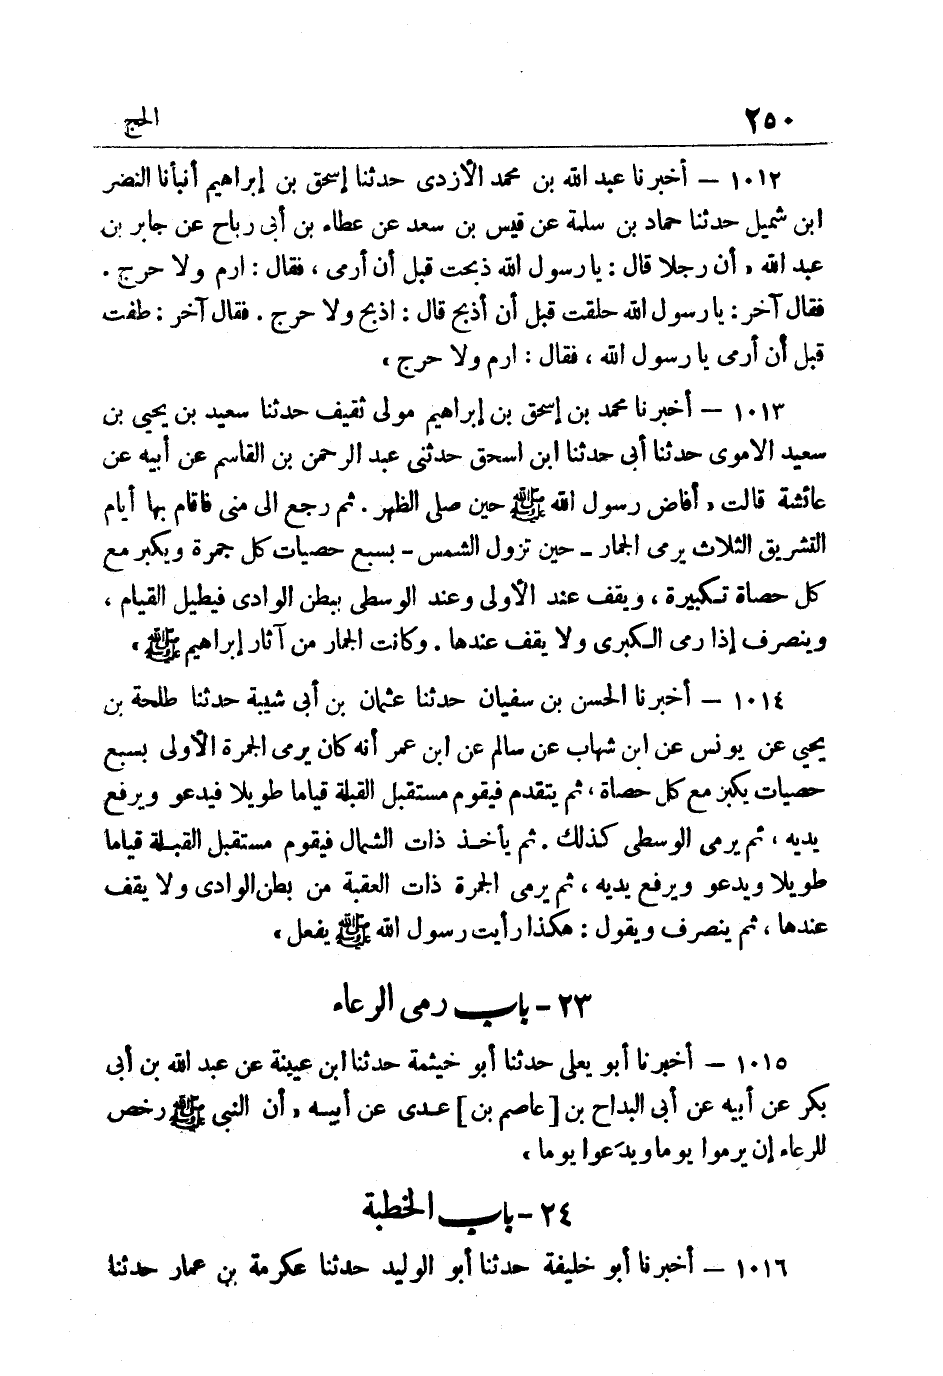 ٢٥٠ الحج
١٠١٢ – أخبرنا عبد الله بن محمد الأزدى حدثنا إسحق بن إبراهيم أنبأنا النضر
ابن شميل حدثنا حماد بن سلمة عن قيس بن سعد عن عطاء بن أبى رباح عن جابر بن
عبد الله « أن رجلا قال : يا رسول الله ذبحت قبل أن أرمى ، فقال : ارم ولا حرج .
فقال آخر : يا رسول الله حلقت قبل أن أذبح قال : اذبح ولا حرج . فقال آخر : طفت
قبل أن أرمى يا رسول الله ، فقال : ارم ولا حرج »
١٠١٣ – أخبرنا محمد بن إسحق بن إبراهيم مولى ثقيف حدثنا سعيد بن يحيى بن
سعيد الاموى حدثنا أبى حدثنا ابن اسحق حدثنى عبد الرحمن بن القاسم عن أبيه عن
عائشة قالت « أفاض رسول الله ﷺ حين صلى الظهر . ثم رجع الى منى فاقام بها أيام
التشريق الثلاث يرمى الجمار – حين تزول الشمس – بسبع حصيات كل جمرة ويكبر مع
كل حصاة تكبيرة ، ويقف عند الأولى وعند الوسطى ببطن الوادى فيطيل القيام ،
وينصرف إذا رمى الكبرى ولا يقف عندها . وكانت الجمار من آثار إبراهيم ﷺ »
١٠١٤ – أخبرنا الحسن بن سفيان حدثنا عثمان بن أبى شيبة حدثنا طلحة بن
يحيى عن يونس عن ابن شهاب عن سالم عن ابن عمر أنه كان يرمى الجمرة الأولى بسبع
حصيات يكبر مع كل حصاة ، ثم يتقدم فيقوم مستقبل القبلة قياما طويلا فيدعو ويرفع
يديه ، ثم يرمى الوسطى كذلك . ثم يأخذ ذات الشمال فيقوم مستقبل القبلة قياما
طويلا ويدعو ويرفع يديه ، ثم يرمى الجمرة ذات العقبة من بطن الوادى ولا يقف
عندها ، ثم ينصرف ويقول : هكذا رأيت رسول الله ﷺ يفعل »
٢٣ – باب رمى الرعاء
١٠١٥ – أخبرنا أبو يعلى حدثنا أبو خيثمة حدثنا ابن عيينة عن عبد الله بن أبى
بكر عن أبيه عن أبى البداح بن [ عاصم بن ] عدى عن أبيه « أن النبى ﷺ رخص
للرعاء إن يرموا يوما ويدَعوا يوما »
٢٤ – باب الخطبة
١٠١٦ – أخبرنا أبو خليفة حدثنا أبو الوليد حدثنا عكرمة بن عمار حدثنا